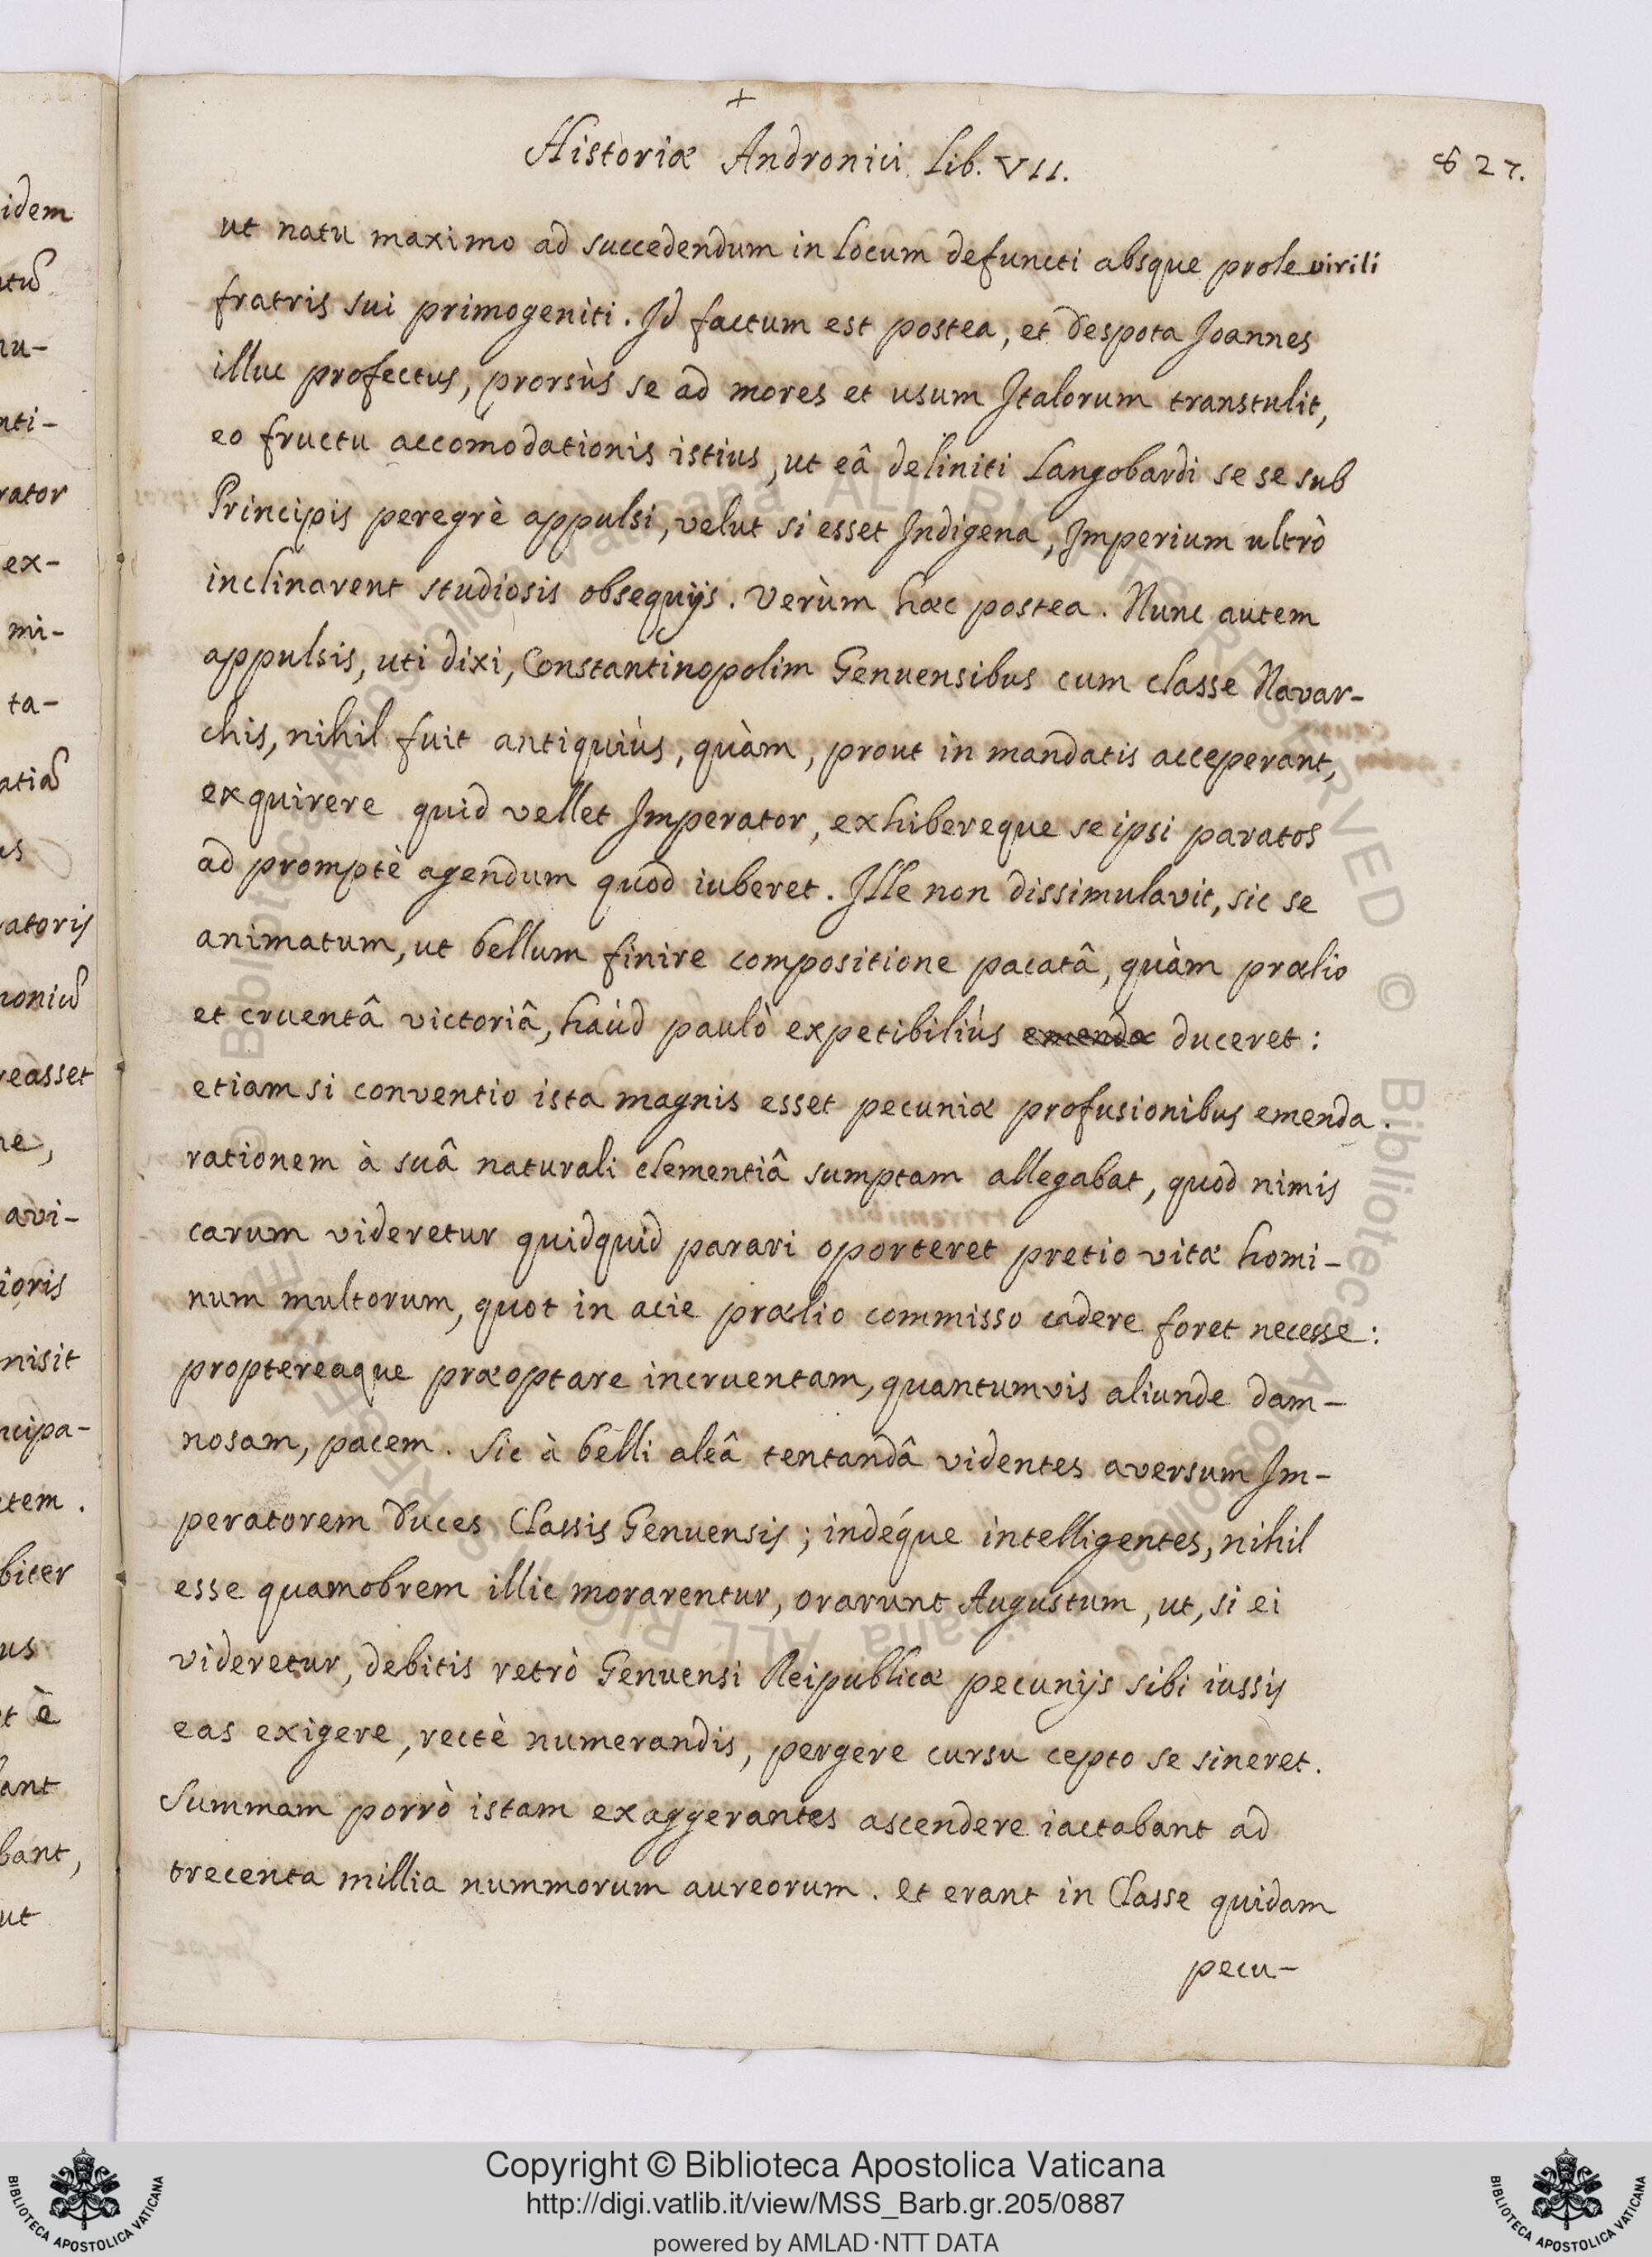 +
Historiæ Andronici Lib. VII.
827.
ut natu maximo ad succedendum in locum defuncti absque prole virili
fratris sui primogeniti. Id factum est postea, et Despota Joannes
illuc profectus, prorsùs se ad mores et usum Italorum transtulit,
eo fructu accomodationis istius, ut eâ deliniti Langobardi se se sub
Principis peregrè appulsi, velut si esset Indigena, Imperium ultrò
inclinarent studiosis obsequijs. Verùm hæc postea. Nunc autem
appulsis, uti dixi, Constantinopolim Genuensibus cum classe Navar-
chis, nihil fuit antiquiùs, quàm, prout in mandatis acceperant,
exquirere quid vellet Imperator, exhibereque se ipsi paratos
ad promptè agendum quod iuberet. Ille non dissimulavit, sic se
animatum, ut bellum finire compositione pacatâ, quàm prælio
et cruentâ victoriâ, haùd paulò expetibiliùs emendæ duceret:
etiam si conventio ista magnis esset pecuniæ profusionibus emenda.
rationem à suâ naturali clementiâ sumptam allegabat, quod nimis
carum videretur quidquid parari oporteret pretio vitæ homi-
num multorum, quot in acie prælio commisso cadere foret necesse:
proptereaque præoptare incruentam, quantumvis aliunde dam-
nosam, pacem. Sic à belli aleâ tentandâ videntes aversum Im-
peratorem Duces Classis Genuensis; indéque intelligentes, nihil
esse quamobrem illic morarentur, orarunt Augustum, ut, si ei
videretur, debitis retrò Genuensi Reipublicæ pecunijs sibi iussis
eas exigere, rectè numerandis, pergere cursu cepto se sineret.
Summam porrò istam exaggerantes ascendere iactabant ad
trecenta millia nummorum aureorum. Et erant in Classe quidam
pecu-
idem
nu-
nti-
rator
ex-
mi-
ta-
us
ratoris
reasset
ne,
avi-
ioris
misit
ncipa-
tem.
biter
us
t è
lant
bant,
ut
Copyright © Biblioteca Apostolica Vaticana
http://digi.vatlib.it/view/MSS_Barb.gr.205/0887
powered by AMLAD·NTT DATA
BIBLIOTECA APOSTOLICA VATICANA
BIBLIOTECA APOSTOLICA VATICANA